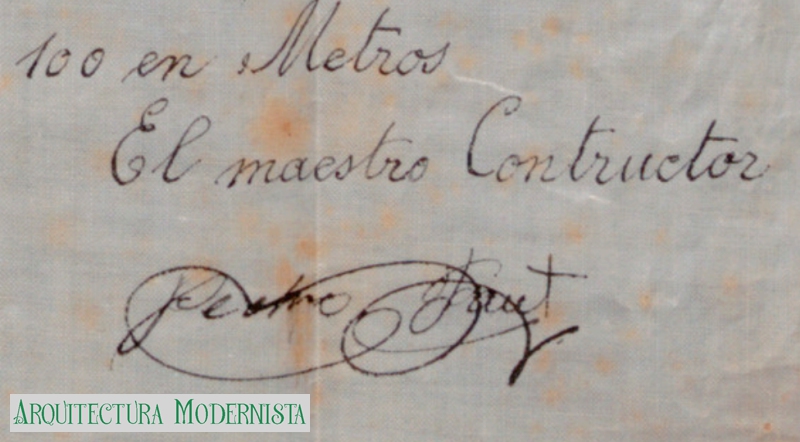 100 en Metros
El maestro Contructor
Pedro
ARQUITECTURA MODERNISTA